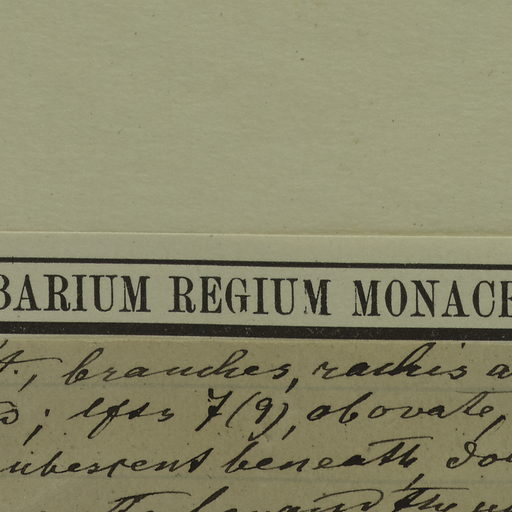 BARIUM REGIUM MONACE
branches, rachis a
; lfts 7(9), obovate,
ubescent beneath,